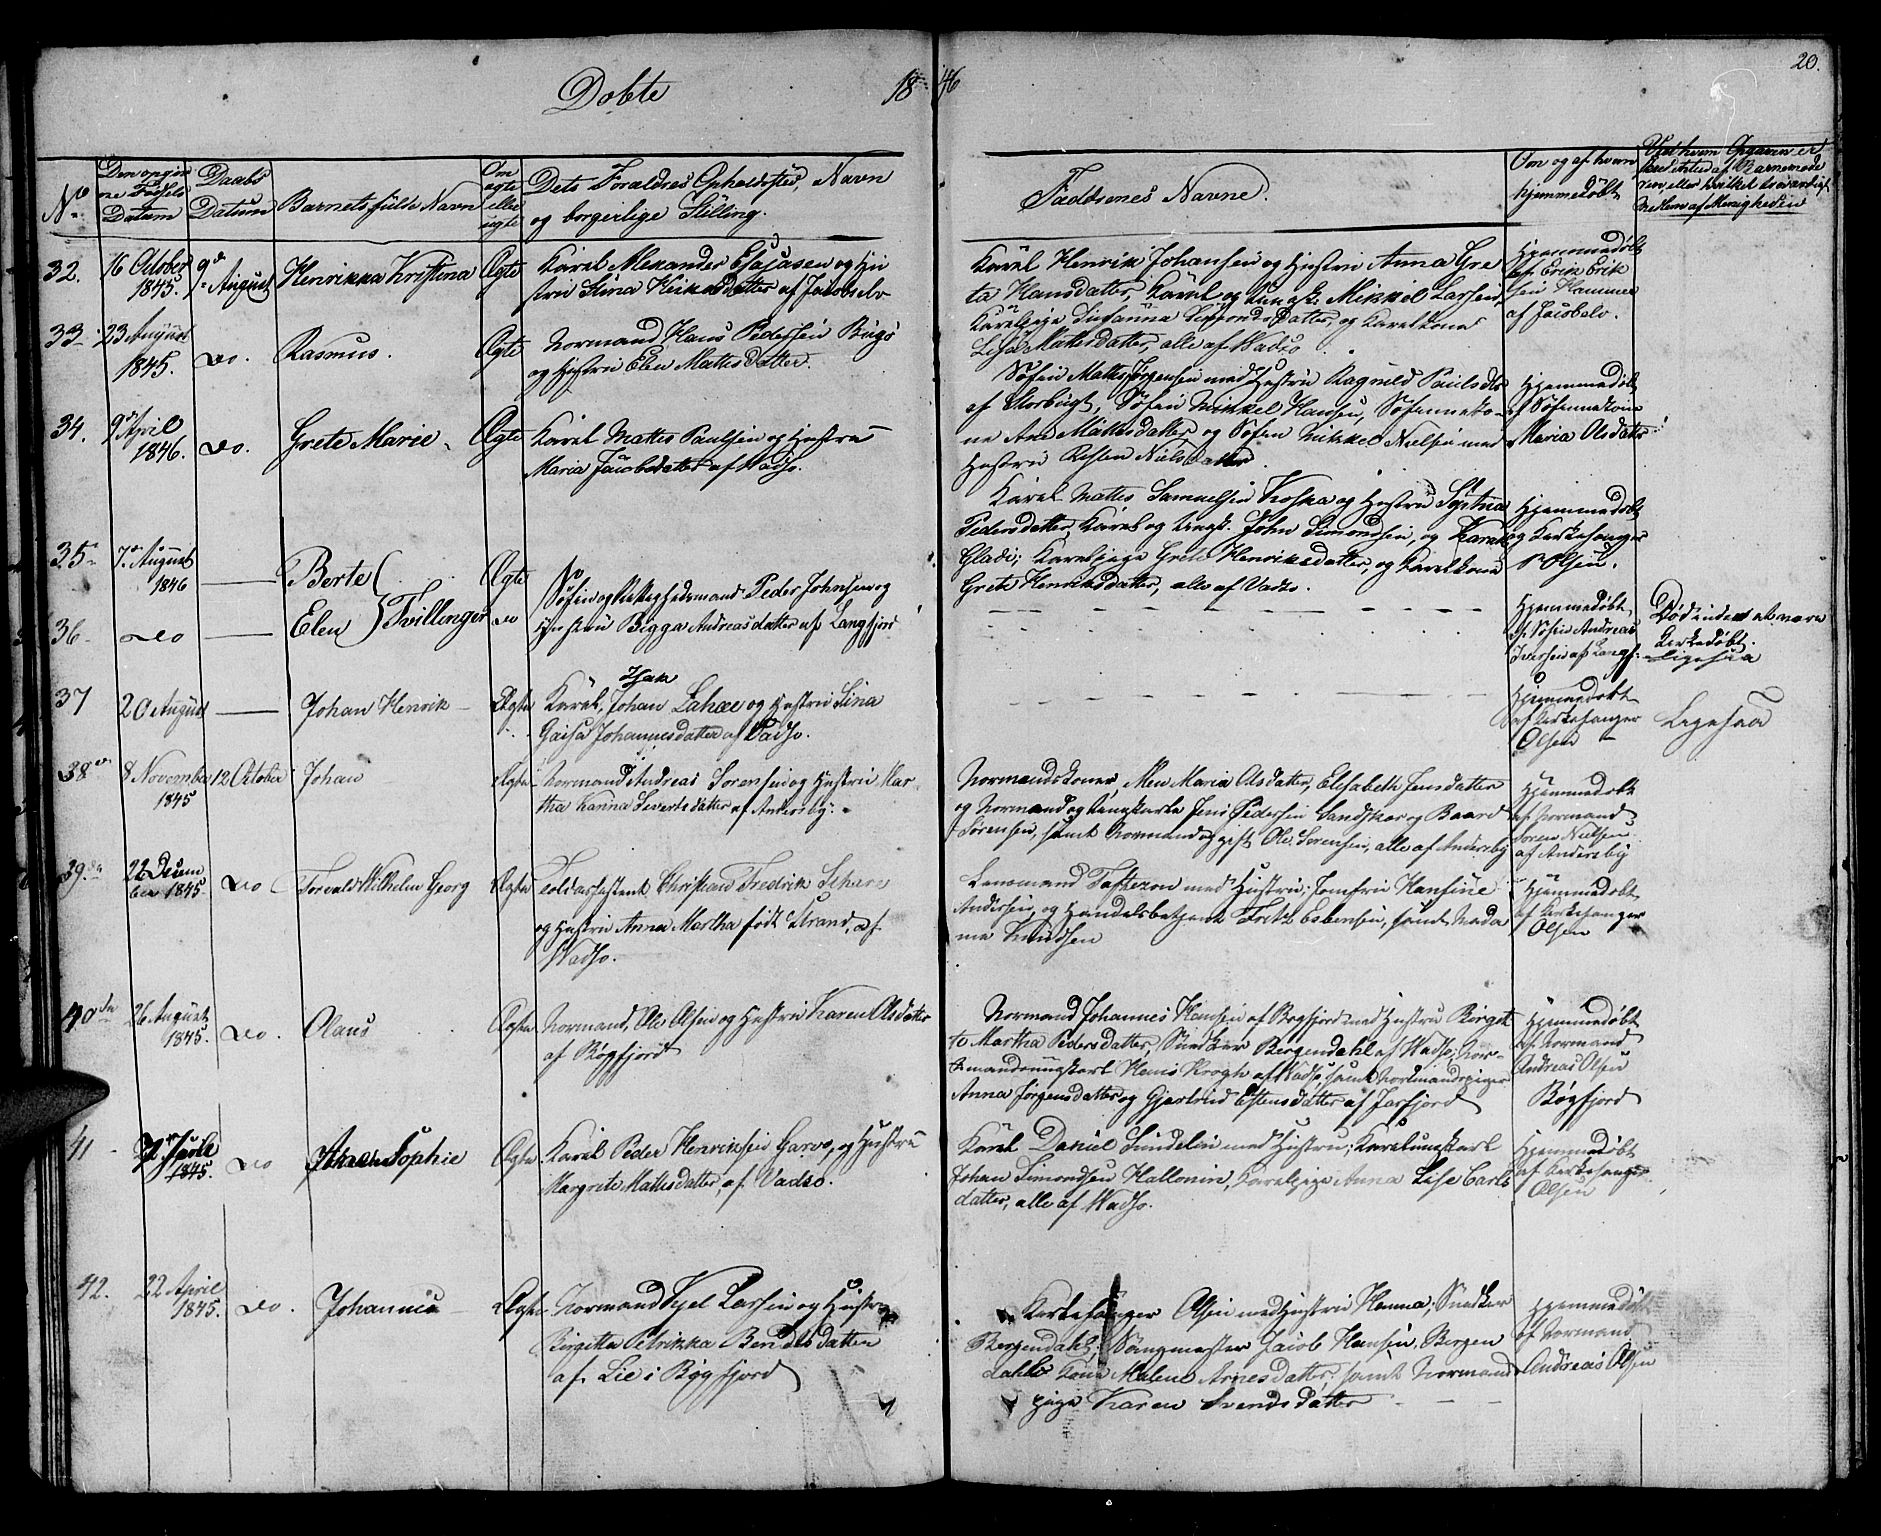 Døbte 1846
20.
No
Den opgivne Fødsels Datum
Daabs Datum
Barnets fulde Navn
Om ægte eller uægte
Dets Forældres Opholdssted, Navn
og borgerlige Stilling.
Faddernes Navne.
Om og af hvem
hjemmedøbt
32. 16 October 1845. 9de August Henrikka Kristina Ægte
Karel Alexander Esajasen og Hu
stru Stina Heikesdatter af Jacobselv
Karel Henrik Johansen og Hustru Anna Gre
ta Hansdatter, Karel og Ungk. Mikkel Larsen,
Karelpige Susanna Simonds Datter, og Karelkone
Lisa Mattisdatter, alle af Vadsø.
Hjemmedøbt
af Erik Erik
sen Hammer
af Jacobelv.
33. 23 August 1845. do. Rasmus. Ægte
Normand Hans Pedersen Bugø
og Hustru Elen Mattisdatter.
Søfin Mattis Jørgensen med Hustru Ragnild Paulsdtr
af Storbugt, Søfin Mikkel Hansen, Søfinneko-
ne Ane Mattisdatter og Søfin Mikkel Nielsen med
Hustru Kirsten Nielsdatter.
Hjemmedøbt
af Søfinnekone
Maria Olsdatter
34. 9de April 1846. do. Grete Marie. Ægte
Karel Mattis Paulsen og Hustru
Maria Jacobsdatter af Vadsø.
Karel Mattis Samuelsen Koska og Hustru
Pedersdatter, Karel og Ungk. John Simondsen, og Karel
Karelpige Grete Henriksdatter, og Karelkone
Grete Henriksdatter, alle af Vadsø.
Hjemmedøbt
og Kirkesanger
Olsen.
35 7de August 1846 — Berte Ægte
36 do — Elen } Tvillinger do
Søfin og Peder Johnsen og
Hustru Bigga Andreasdatter af Langfjord
Hjemmedøbt
af Søfin Andreas
Iversen af Langf:
Død inden at være
Kirkedøbt.
Ligesaa
37 20 August — Johan Henrik — Ægte
Isak
Karel, Johan Lahæe og Hustru Sina
Gaisa Johannesdatter af Vadsø.
Hjemmedøbt
af Kirkesanger
Olsen
Ligesaa
38 8 November 1845 12 October Johan Ægte
Normand Andreas Sørensen og Hustru Mar-
tha Karina Sivertsdatter af Andersby.
Normandskoner, Maria Olsdatter, Elisabeth Jensdatter
og Normand og Ungkarle Jens Pedersen Sandskar og Baard
Sørensen, samt Normand og gift Ole Sørensen, alle af Andersby
Hjemmedøbt
af Normand
Søren Nielsen
af Andersby
39 22 Decem
ber 1845. do Torvald Wilhelm Georg Ægte
Toldassistent Christian Fredrik Schare
og Hustru Anna Martha født Strand, af
Vadsø.
Lensmand med Hustru; Jomfru Hansine
Andersen, og Handelsbetjent Fritz Esbensen, samt Mada
me Knudsen
Hjemmedøbt
af Kirkesanger
Olsen
40 26 August 1845. do. Olaus. Ægte
Normand, Ole Olsen og Hustru Karen Olsdatter
af Bøgfjord
Normand Johannes Hansen af Bøgfjord med Hustru Birgit
te Martha Pedersdatter, Snedker Bergendahl af Vadsø, Nor-
mandsungkarl Hans Krogh af Vadsø, samt Normandspiger
Anna Jørgensdatter og Gjertrud Estensdatter af Jarfjord
Hjemmedøbt
af Normand
Andreas Olsen
Bøgfjord
41 1845. do Sophie Ægte
Karel Peder Henriksen Garvo, og Hustru
Margrete Mattisdatter, af Vadsø.
Karel Daniel Sundelin med Hustru; Karelungkarl
Johan Simondsen Hallonin, Karelpige Anna Lise Carls
datter, alle af Vadsø.
Hjemmedøbt
af Kirkesanger
Olsen
42. 22 April 1845. do. Johannes Ægte
Normand Kjel Larsen og Hustru
Birgitta Petrikka Bendiksdatter
af Lie i Bøgfjord
Kirkesanger Olsen med Hustru Hanna; Snedker
Bergendahl; Sangmester Jacob Hansen, Bergen
dahls Kone Malene Arnesdatter, samt Normand
pige Karen Svendsdatter
Hjemmedøbt
af Normand
Andreas Olsen